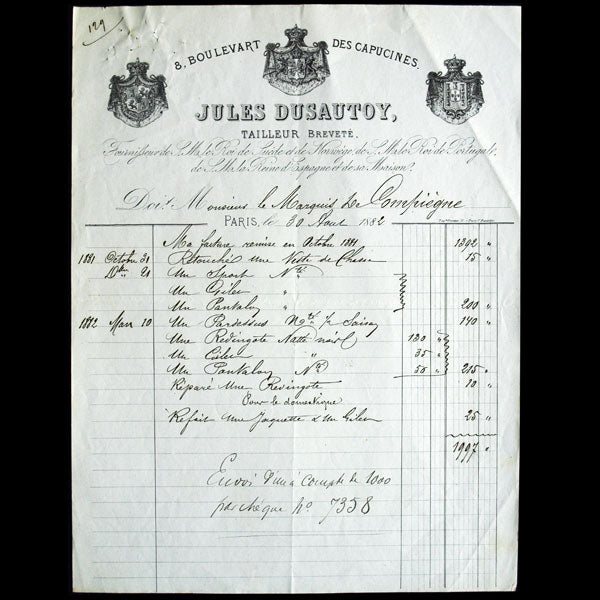 129
8, BOULEVART DES CAPUCINES.
JULES DUSAUTOY,
TAILLEUR BREVETÉ,
Fournisseur de S. M. le Roi de Suède et de Norwège, de S. M. le Roi de Portugal,
de S. M. la Reine d'Espagne et de sa Maison.
Doit Monsieur le Marquis de Compiègne
PARIS, le 30 Aout 1882
Ma facture remise en Octobre 1881 1302 "
1881 Octobre 31 Retouché une Veste de Chasse 15 "
Dbre 21 Un Sport Nté
Un Gilet "
Un Pantalon " 200 "
1882 Mars 10 Un Pardessus Nté 140 "
Une Redingote Natté noir 130 "
Un Gilet " 35 "
Un Pantalon Nté 50 " 215 "
Réparé Une Redingote 10 "
Pour le domestique
Refait Une Jaquette & Un Gilet 25 "
1997 "
Envoi d'un à compte de 1000
par chèque no 7358